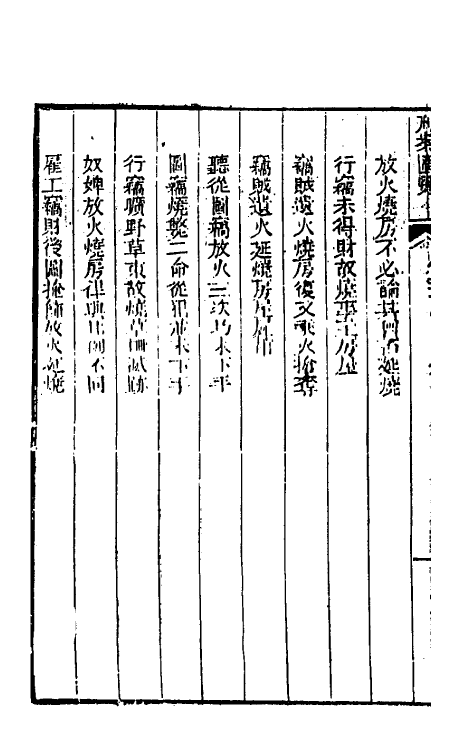 放火燒房不必論其曾否延燒
行竊未得財故燒事主房屋
竊賊遺火燒房復又乘火搶奪
竊賊遺火延燒房屋
聽從圖竊放火三次均未下手
圖竊燒斃二命從犯並未下手
行竊曠野草束故燒草滅跡
奴婢放火燒房律與例不同
雇工竊財後圖掩飾放火延燒